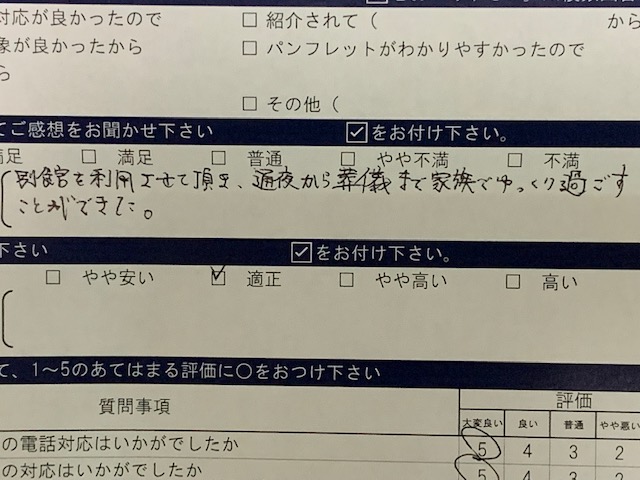 対応が良かったので □ 紹介されて( から
象が良かったから □ パンフレットがわかりやすかったので
ら
□ その他(
てご感想をお聞かせ下さい ☑をお付け下さい。
満足 □ 満足 □ 普通 □ やや不満 □ 不満
別館を利用させて頂き、通夜から葬儀まで家族でゆっくり過ごす
ことができた。
下さい ☑をお付け下さい。
□ やや安い ☑ 適正 □ やや高い □ 高い
て、1~5のあてはまる評価に○をおつけ下さい
質問事項 評価
大変良い 良い 普通 やや悪い
の電話対応はいかがでしたか 5 4 3 2
の対応はいかがでしたか 5 4 3 2